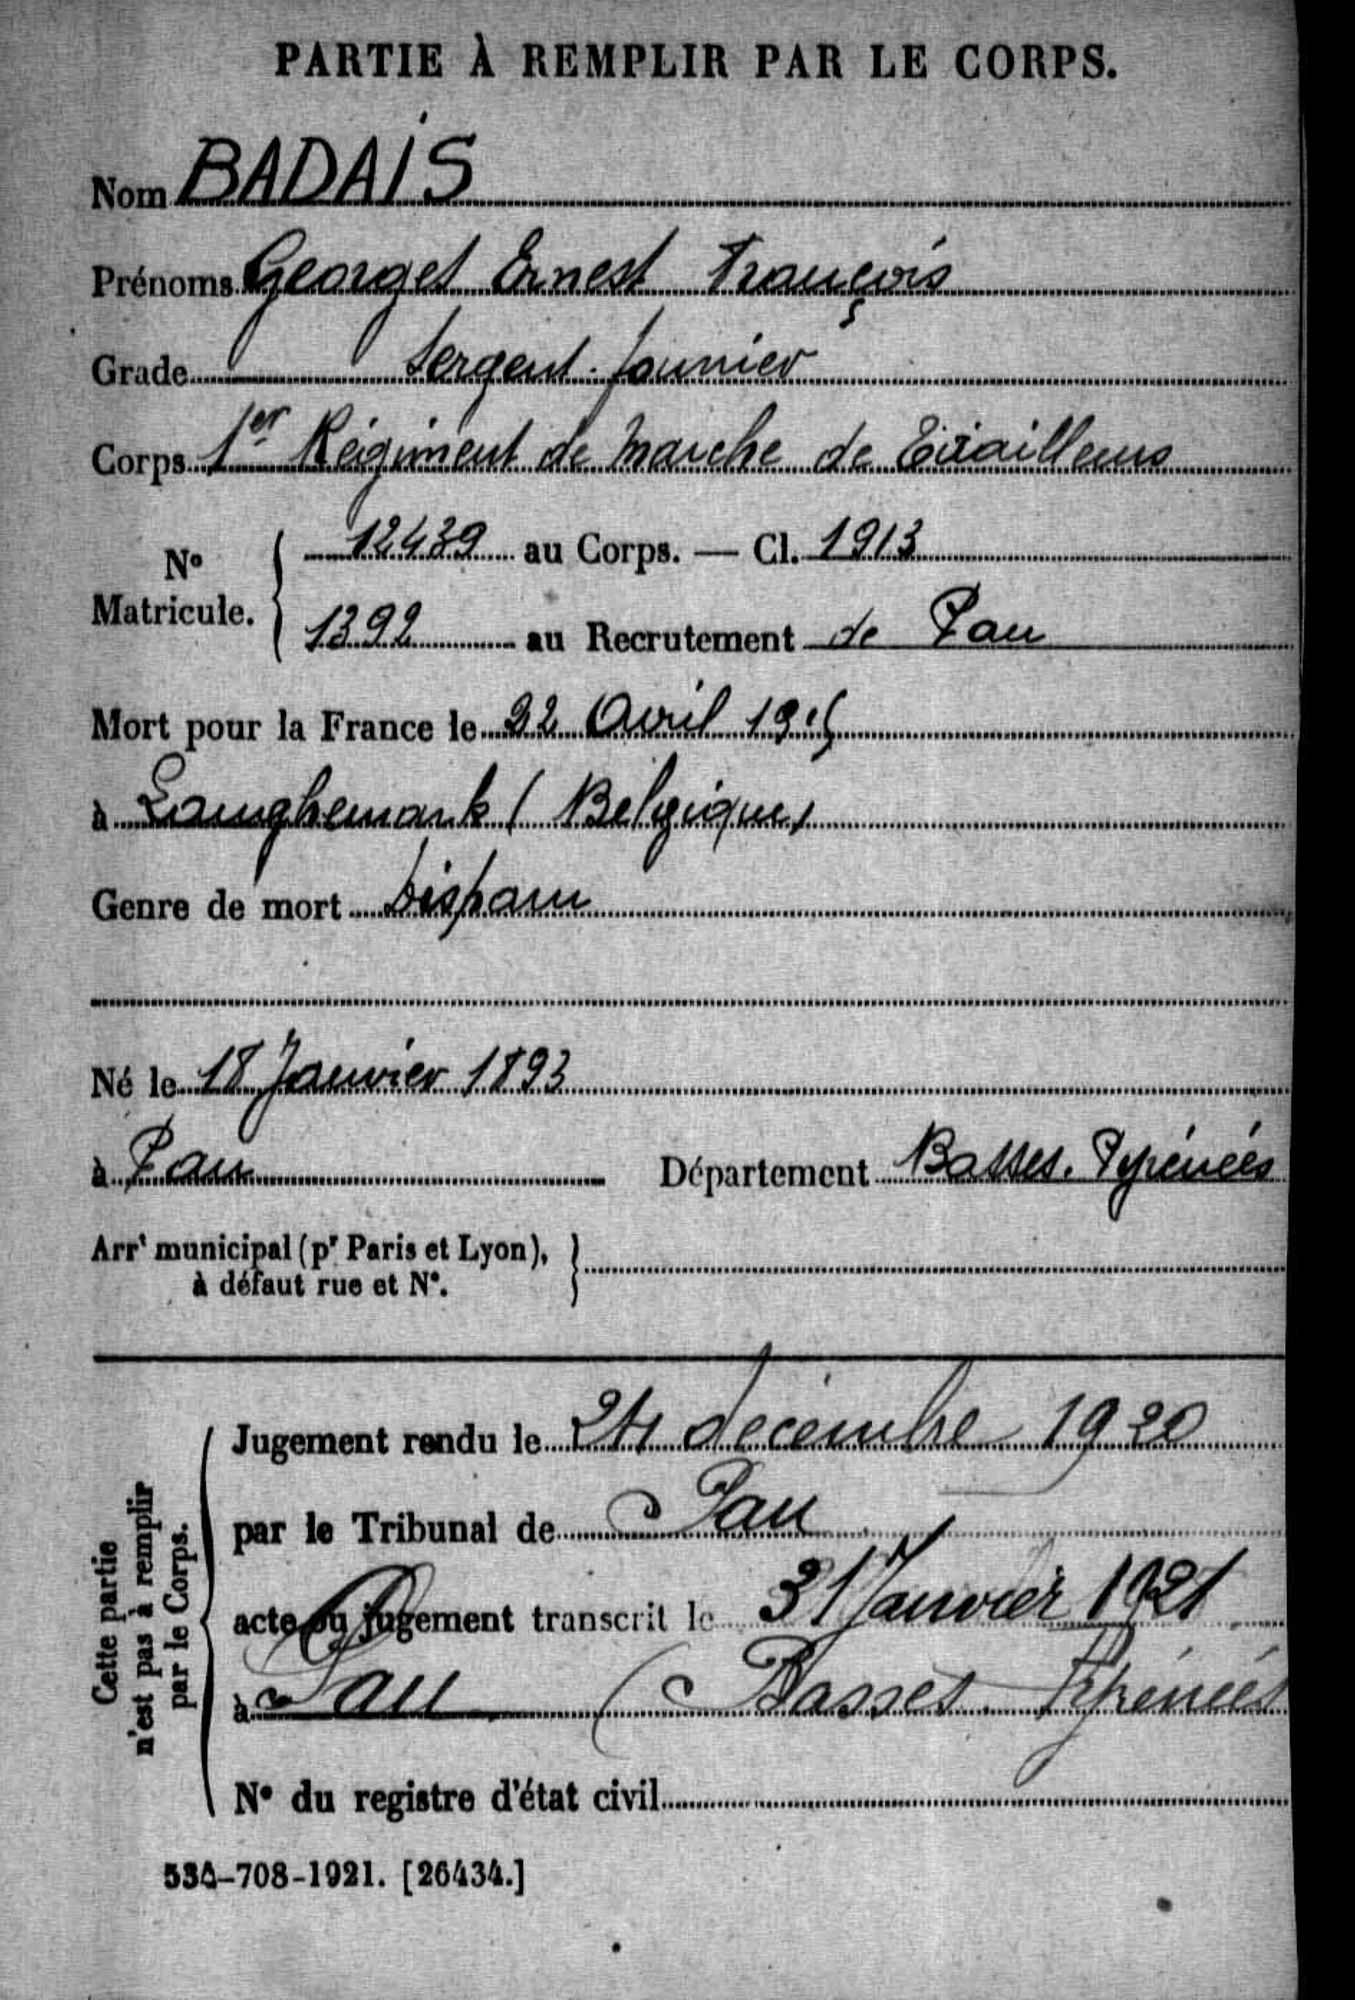 PARTIE À REMPLIR PAR LE CORPS.
Nom BADAIS
Prénoms Georges Ernest François
Grade Sergent-fourrier
Corps 1er Régiment de marche de Tirailleurs
No Matricule. 12439 au Corps. — Cl. 1913
1392 au Recrutement de Pau
Mort pour la France le 22 Avril 1915
à Langhemark (Belgique)
Genre de mort Disparu
Né le 18 Janvier 1893
à Pau Département Basses-Pyrénées
Arrt municipal (pr Paris et Lyon),
à défaut rue et No.
Cette partie
n'est pas à remplir
par le Corps.
Jugement rendu le 24 décembre 1920
par le Tribunal de Pau
acte ou jugement transcrit le 31 Janvier 1921
à Pau (Basses Pyrénées
No du registre d'état civil
534-708-1921. [26434.]